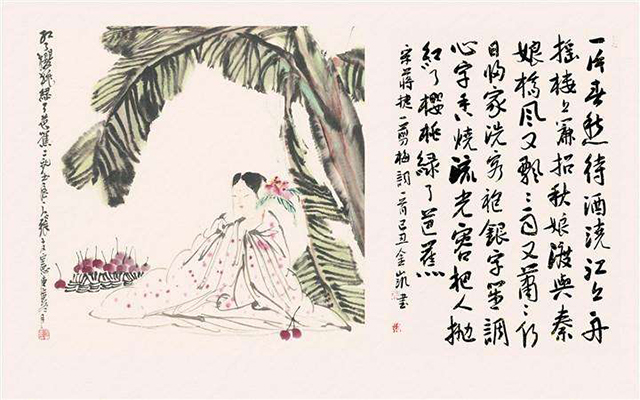 红了樱桃绿了芭蕉
一片春愁待酒浇江上舟
摇楼上簾招秋娘渡与秦
娘桥风又飘〻雨又萧〻何
日归家洗客袍银字笙调
心字香烧流光容易把人抛
红了樱桃绿了芭蕉
宋蒋捷一剪梅调一首己丑金凯书